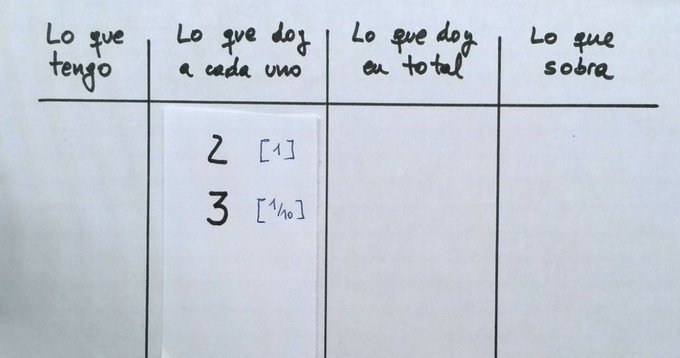 Lo que tengo
Lo que doy a cada uno
Lo que doy en total
Lo que sobra
2 [1]
3 [1/10]